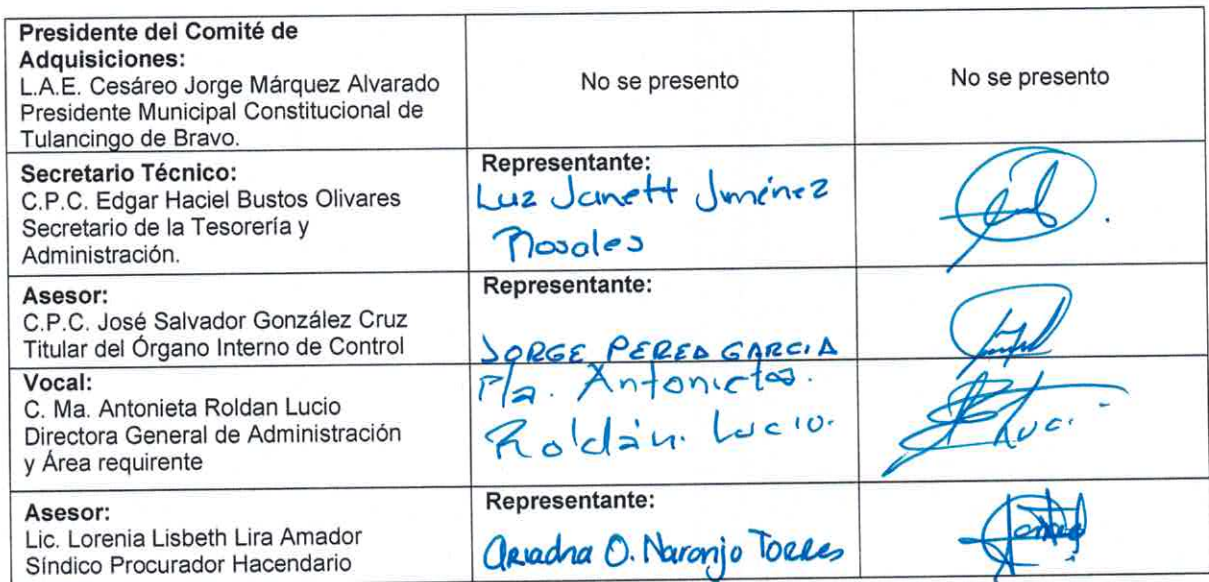 Presidente del Comité de
Adquisiciones:
L.A.E. Cesáreo Jorge Márquez Alvarado
Presidente Municipal Constitucional de
Tulancingo de Bravo.
No se presento
No se presento
Secretario Técnico:
C.P.C. Edgar Haciel Bustos Olivares
Secretario de la Tesorería y
Administración.
Representante:
Luz Janett Jiménez
Rosales
Asesor:
C.P.C. José Salvador González Cruz
Titular del Órgano Interno de Control
Representante:
JORGE PEREA GARCIA
Vocal:
C. Ma. Antonieta Roldan Lucio
Directora General de Administración
y Área requirente
Ma. Antonieta.
Roldán. Lucio.
Asesor:
Lic. Lorenia Lisbeth Lira Amador
Síndico Procurador Hacendario
Representante:
Ariadna O. Naranjo Torres